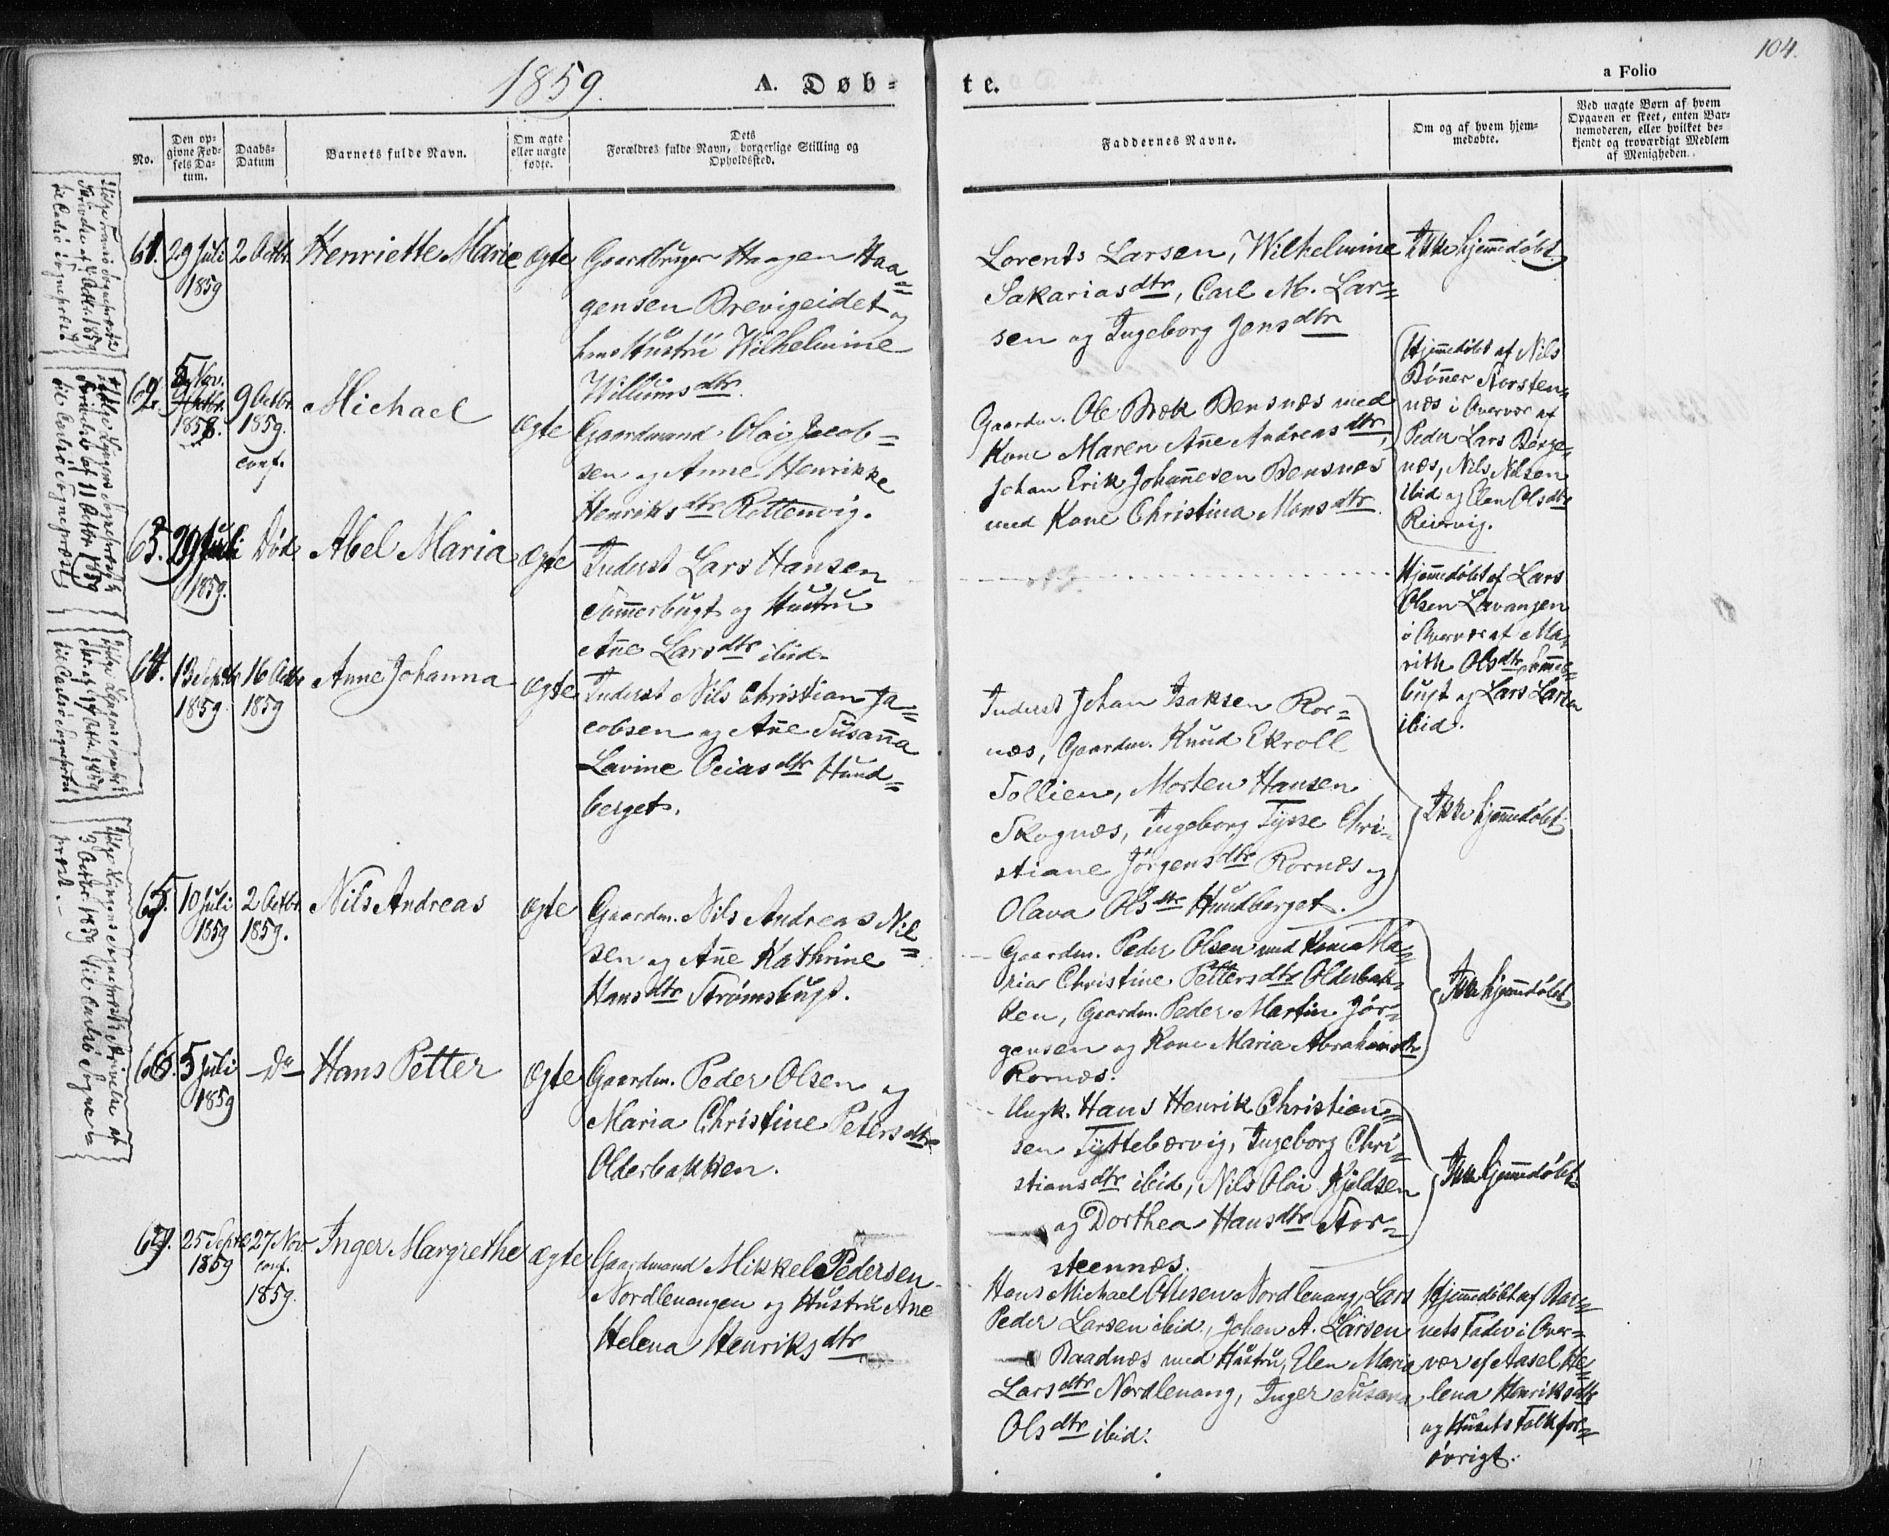 104.
1859.
A. Døb-
te.
a Folio
No.
Den op-
givne Fød-
sels Da-
tum.
Daabs-
Datum
Barnets fulde Navn.
Om ægte
eller uægte
fødte.
Dets
Forældres fulde Navn, borgerlige Stilling og
Opholdssted.
Faddernes Navne.
Om og af hvem hjem-
medøbte.
Ved uægte Børn af hvem
Opgaven er skeet, enten Bar-
nemoderen, eller hvilket be-
kjendt og troværdigt Medlem
af Menigheden.
61. 29 Juli
1859
2 Octbr. Henriette Marie ægte
Gaardbruger Haagen Haa=
gensen Brevigeidet og
hans Hustrü Wilhelmine
Willumsdtr.
Lorents Larsen, Wilhelmine
Sakariasdtr, Carl M. Lar=
sen og Ingeborg Jensdtr
Ikke hjem̄edøbt
62.
5 Nov.
1858.
9 Octbr.
1859.
conf.
Michael
ægte
Gaardmand Olai Jacob=
sen og Anne Henrikke
Henriksdtr Rottenvig.
Gaardm. Ole Bræk Bensnæs med
Kone Maren An̄e Andreasdtr,
Johan Erik Johan̄esen Bensnæs
med Kone Christina Monsdtr.
Hjem̄edøbt af Nils
Bön̄er Storsten=
næs i Overvær af
Peder Lars Berge=
næs, Nils Nilsen
ibid og Elen Olsdtr
Reiervig.
63. 29 Juli
1859.
Død Abel Maria ægte
Inderst Lars Hansen
Sommerbugt og Hustru
An̄e Larsdtr ibid.
Hjem̄edøbt af Lars
Olsen Lavangen
i Overvær af Ma=
rith Olsdtr Som̄er=
bugt og Lars Larsen
ibid.
64. 13 Septbr
1859.
16 Octbr
1859
Anne Johanna ægte
Inderst Nils Christian Ja=
cobsen og An̄e Süsan̄a
Lavine Peiasdtr Hund=
berget.
Inderst Johan Isaksen Ror=
næs, Gaardm. Knud Ekroll
Sollien, Morten Hansen
Skognæs, Ingeborg Tysse Chri=
stiane Jørgensdtr Rornæs og
Olava Olsdtr Hundberget.
Ikke hjem̄edøbt
65. 10 Juli
1859
2 Octbr.
1859.
Nils Andreas ægte
Gaardm. Nils Andreas Nil=
sen og An̄e Kathrine
Hansdtr Strømsbugt.
Gaardm. Peder Olsen med Kone Ma=
ria Christine Pettersdtr Olderbak=
ken, Gaardm. Peder Martin Jør=
gensen og Kone Maria Abrahamsdtr
Rornæs.
Ikke hjem̄edøbt
66. 5 Juli
1859
Do
Hans Petter ægte
Gaardm. Peder Olsen og
Maria Christine Petersdtr
Olderbakken.
Ungk. Hans Henrik Christian=
sen Tyttebærvig, Ingeborg Chri=
stiansdtr ibid, Nils Olai Kjeldsen
og Dorthea Hansdtr Stor=
steennæs.
Ikke hjem̄edøbt
67. 25 Septbr
1859
27 Nov.
conf.
1859.
Inger Margrethe ægte
Gaardmand Mikkel Pedersen
Nordlenangen og Hustru Ane
Helena Henriksdtr
Hans Michael Olesen Nordlenang, Lars
Peder Larsen ibid., Johan A. Larsen
Baadnæs med Hustru, Elen Maria
Larsdtr Nordlenang, Inger Susana
Olsdtr ibid:
Hjem̄edøbt af Bar=
nets Fader i Over=
vær af Aasel He=
lena Henriksdtr
og Husets Folk for=
øvrigt.